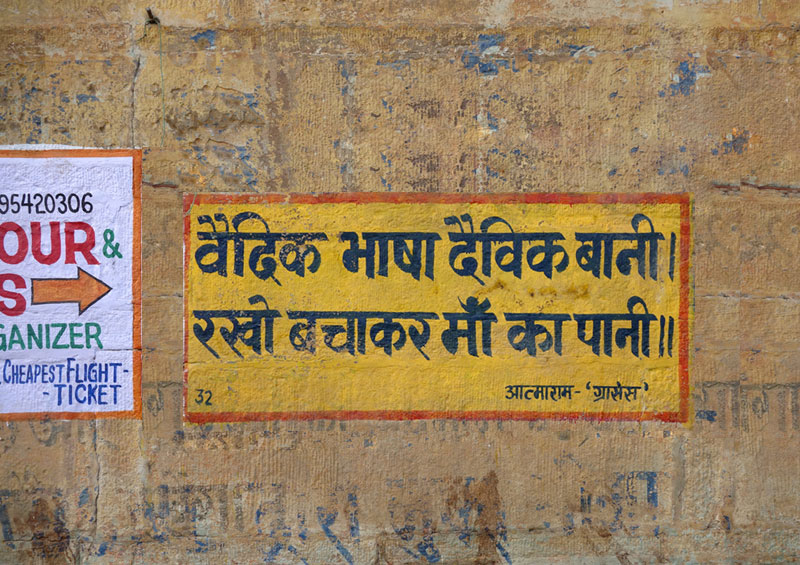 95420306
OUR &
S
GANIZER
CHEAPEST FLIGHT-
-TICKET
वैदिक भाषा दैविक बानी।
रखो बचाकर माँ का पानी॥
32 आत्माराम-'ग्रासेस'